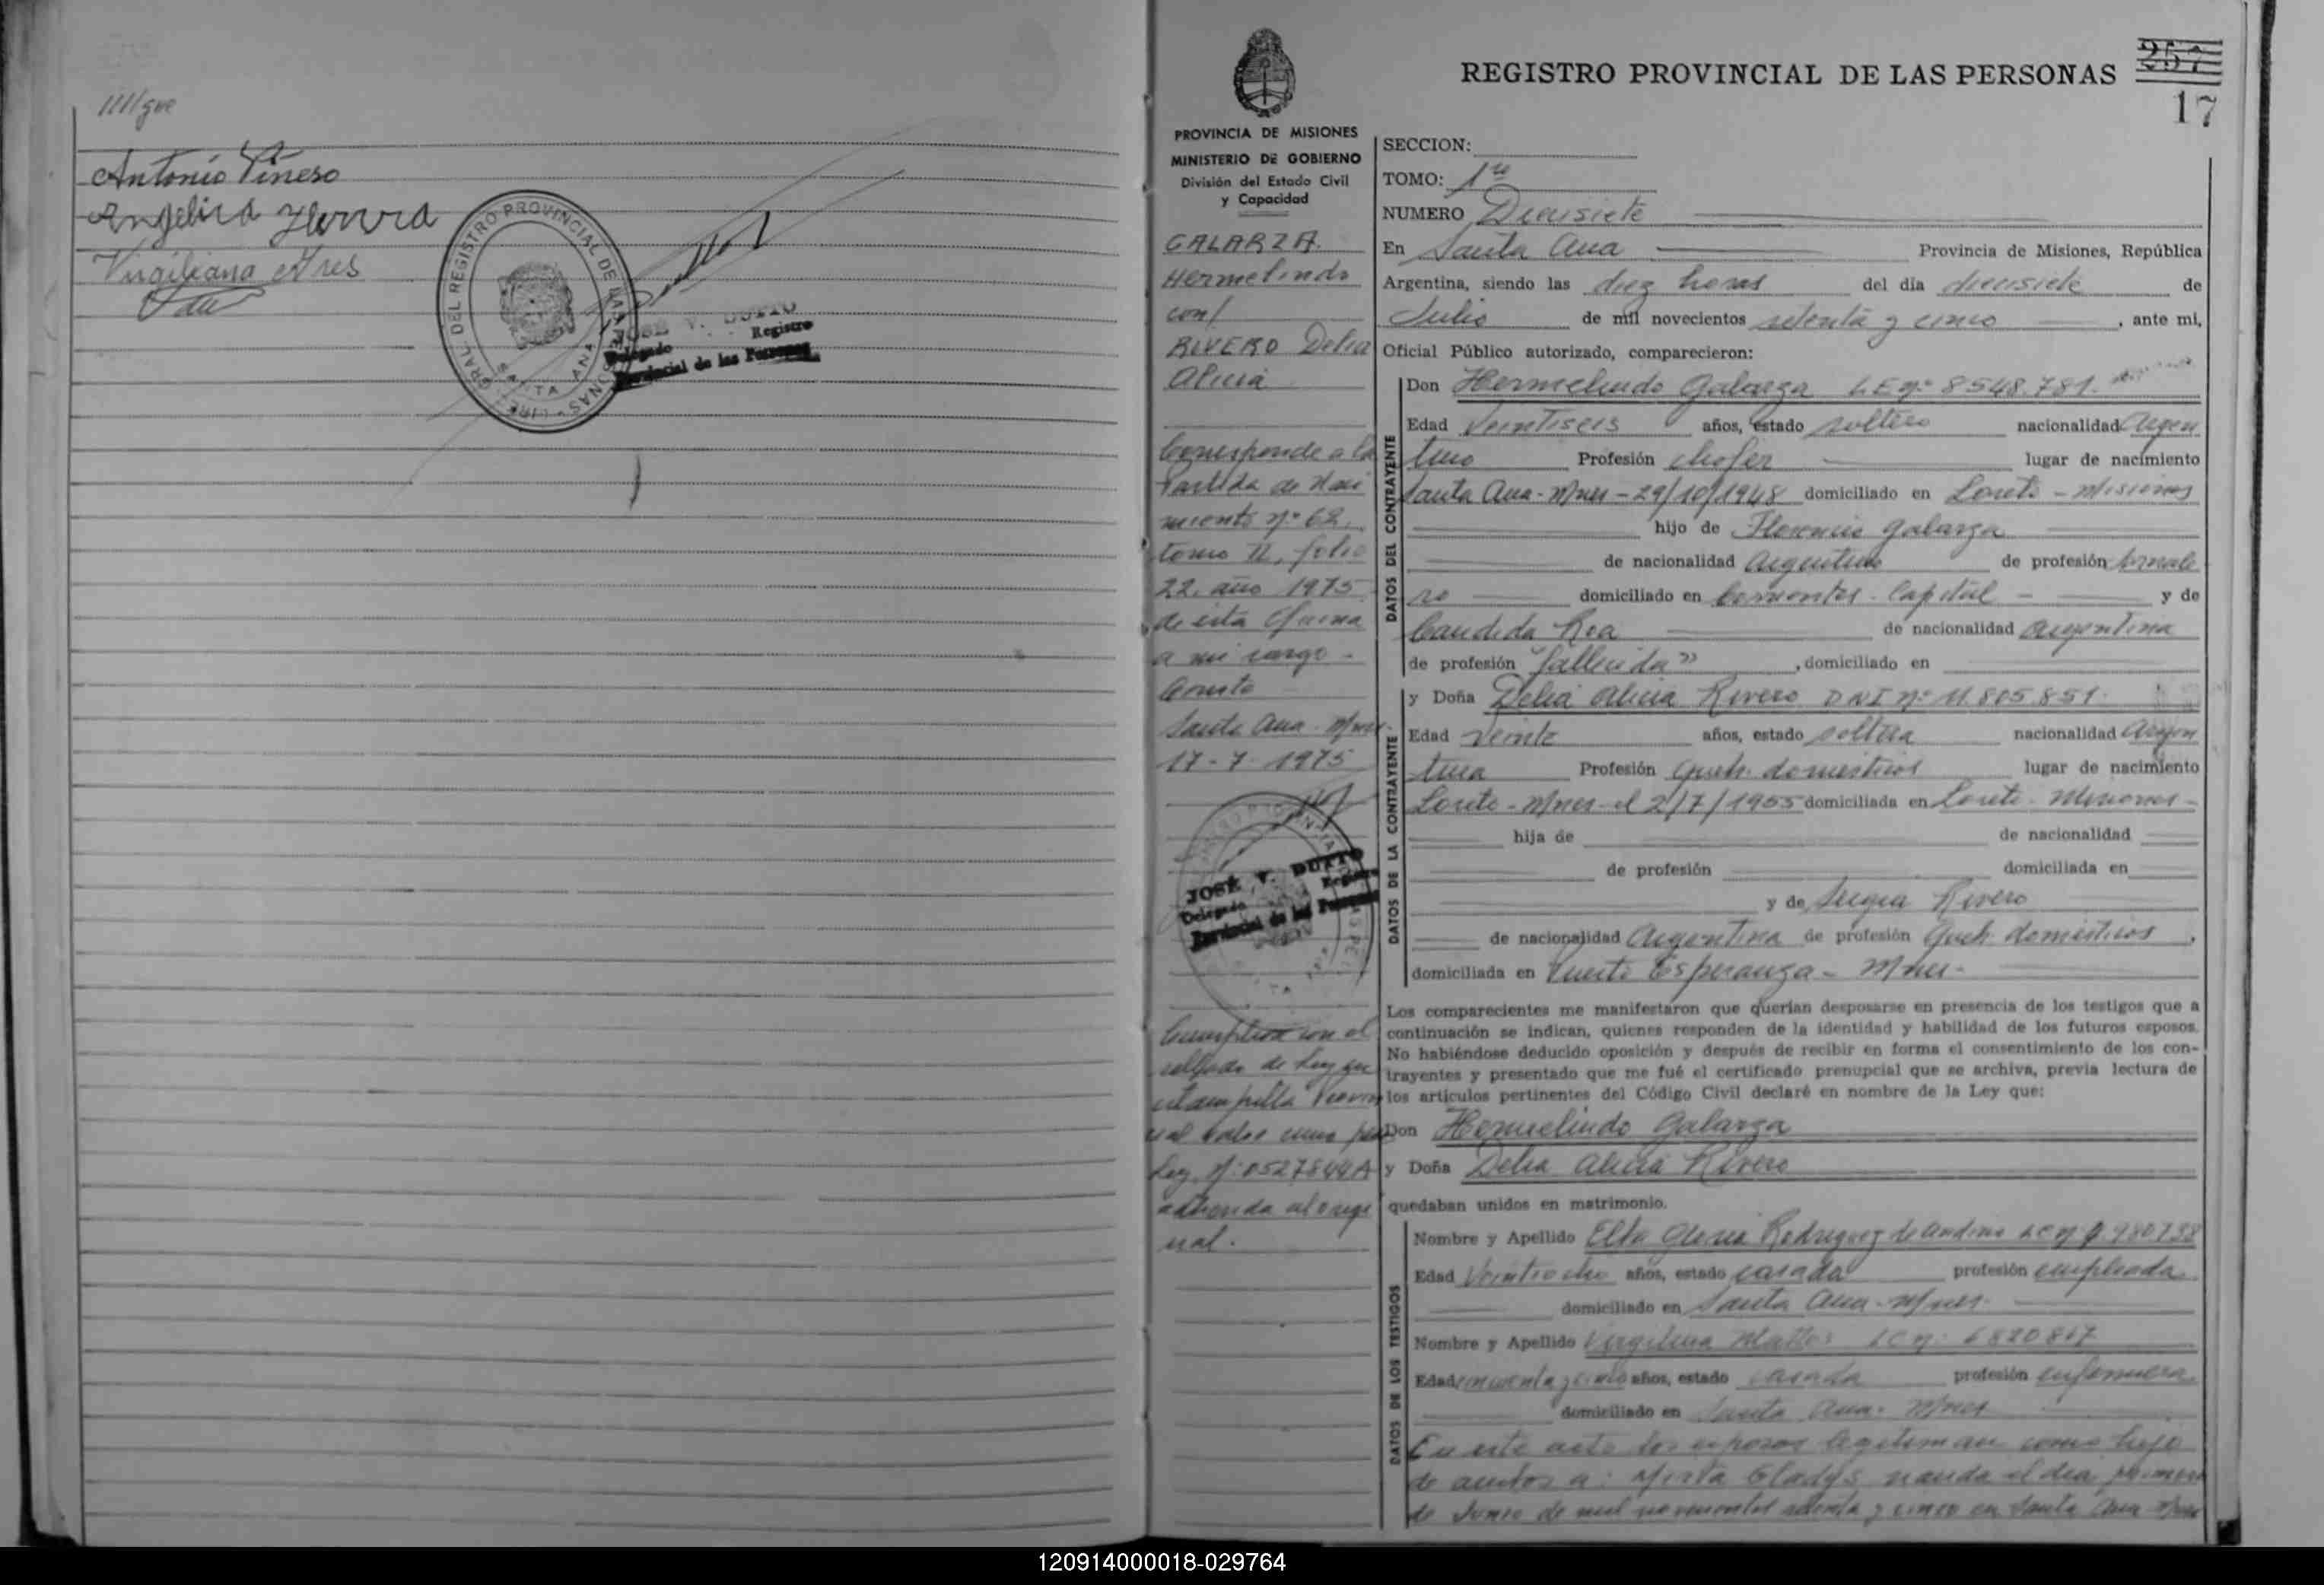 ////gue
Antonio Piñero
Angelica
Virgiliana Ares
GRAL. DEL REGISTRO PROVINCIAL DE LAS PERSONAS
SANTA ANA
JOSÉ V. DUTTO
Delegado Registro
Provincial de las Personas
REGISTRO PROVINCIAL DE LAS PERSONAS
257
17
PROVINCIA DE MISIONES
MINISTERIO DE GOBIERNO
División del Estado Civil
y Capacidad
GALARZA
Hermelindo
con/
RIVERO Delia
Alicia
Corresponde a la
Partida de Naci
miento nº 62,
tomo II, folio
22, año 1975
de esta Oficina
a mi cargo -
Conste
Santa Ana - Mnes -
17-7-1975
JOSÉ V. DUTTO
Delegado Registro
Provincial de las Personas
con el
sellado de Ley
estampilla Provin
cial valor
Ley Nº 0527844A
adherida al origi
nal.
SECCION:
TOMO: 1ro
NUMERO Diecisiete
En Santa Ana Provincia de Misiones, República
Argentina, siendo las diez horas del día diecisiete de
Julio de mil novecientos setenta y cinco, ante mi,
Oficial Público autorizado, comparecieron:
DATOS DEL CONTRAYENTE
Don Hermelindo Galarza L E nº 8548.781.
Edad Veintiseis años, estado soltero nacionalidad Argen
tino Profesión chofer lugar de nacimiento
Santa Ana - Mnes - 29/10/1948 domiciliado en Loreto - Misiones
hijo de Florencio Galarza
de nacionalidad Argentino de profesión Jornale
ro domiciliado en Corrientes - Capital - y de
Candida Roa de nacionalidad Argentina
de profesión "fallecida" , domiciliado en
DATOS DE LA CONTRAYENTE
y Doña Delia Alicia Rivero D N I nº 11.805.851.
Edad Veinte años, estado soltera nacionalidad Argen
tina Profesión Queh. domesticos lugar de nacimiento
Loreto - Mnes - el 2/7/1955 domiciliada en Loreto - Misiones -
hija de de nacionalidad
de profesión domiciliada en
y de Rivero
de nacionalidad Argentina de profesión Queh. domesticos ,
domiciliada en Puerto Esperanza - Mnes -
Los comparecientes me manifestaron que querían desposarse en presencia de los testigos que a
continuación se indican, quienes responden de la identidad y habilidad de los futuros esposos.
No habiéndose deducido oposición y después de recibir en forma el consentimiento de los con-
trayentes y presentado que me fué el certificado prenupcial que se archiva, previa lectura de
los artículos pertinentes del Código Civil declaré en nombre de la Ley que:
Don Hermelindo Galarza
y Doña Delia Alicia Rivero
quedaban unidos en matrimonio.
DATOS DE LOS TESTIGOS
Nombre y Apellido Elba Gloria Rodriguez de Andino LC nº
Edad Veintiocho años, estado casada profesión empleada
domiciliado en Santa Ana - Mnes -
Nombre y Apellido Virgilina Mattos LC nº 6820867
Edad cincuenta y cinco años, estado casada profesión enfermera
domiciliado en Santa Ana - Mnes
En este acto los esposos legitiman como hija
de ambos a: Mirta Gladys nacida el dia primero
de Junio de mil novecientos setenta y cinco en Santa Ana Mnes
120914000018-029764